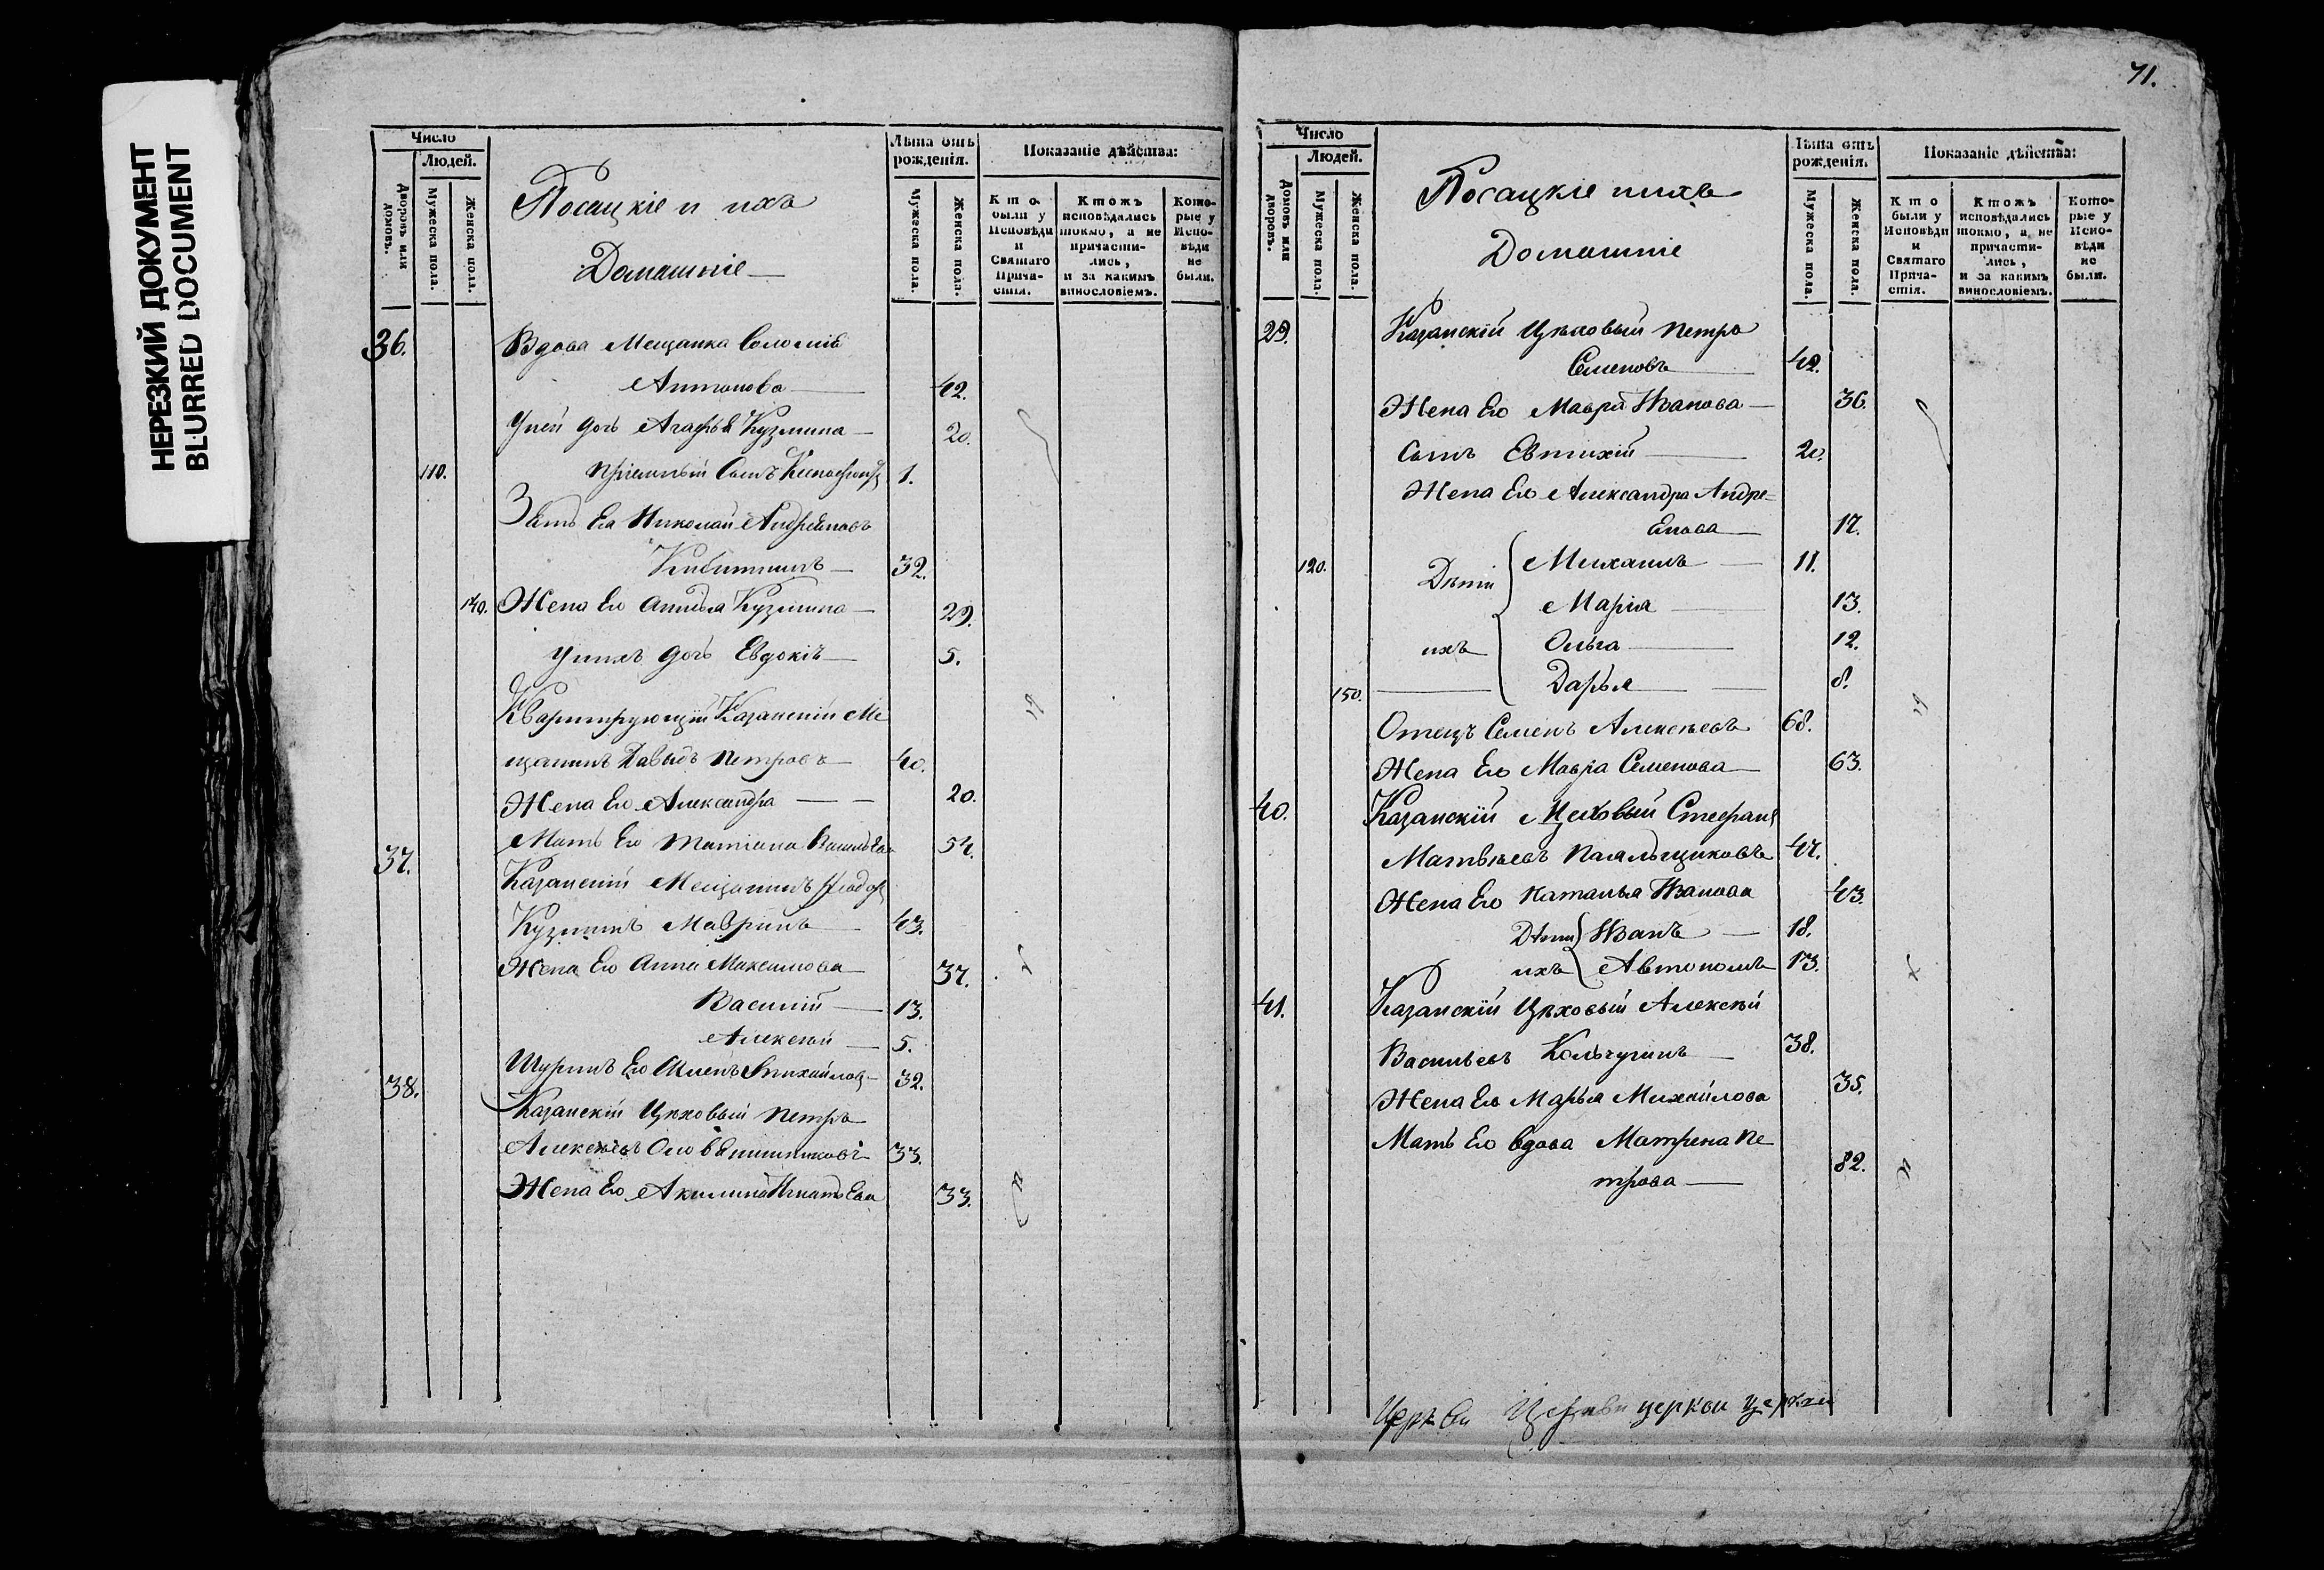 НЕРЕЗКИЙ ДОКУМЕНТ
BLURRED DOCUMENT
Число
Людей.
Дворовъ или домовъ.
Мужеска пола.
Женска пола.
Посацкіе и ихъ
Домашніе
Лѣта отъ рожденія.
Мужеска пола.
Женска пола.
Показаніе дѣйства:
Кто были у Исповѣди и Святаго Прича-стія.
Ктожъ исповѣдались токмо, а не причасти-лись, и за какимъ винословіемъ.
Кото-рые у Испо-вѣди не были.
36. Вдова Мещанка Соломія
Антонова 42.
У ней дочь Агафья Кузмина 20.
110. Пріемный Сынъ 1.
Зять Ея Николай Андреяновъ
32.
140. Жена Его Анисья Кузмина 29.
У нихъ дочь Евдокія 5.
Квартирующій Казанскій Ме
щанинъ Давыдъ Петровъ 40.
Жена Его Александра 20.
Мать Его Татіана Васильева 54.
37. Казанскій Мещанинъ Ѳедоръ
Кузминъ Мавринъ 43.
Жена Его Анна Максимова 37.
Василій 13.
Алексѣй 5.
Шуринъ Его Михайловъ 32.
38. Казанскій Цѣховый Петръ
Алексѣевъ 33.
Жена Его Акилина Игнатьева 33.
71.
Число
Людей.
Домовъ или дворовъ.
Мужеска пола.
Женска пола.
Посацкіе и ихъ
Домашніе
Лѣта отъ рожденія.
Мужеска пола.
Женска пола.
Показаніе дѣйства:
Кто были у Исповѣди и Святаго Прича-стія.
Ктожъ исповѣдались токмо, а не причасти-лись, и за какимъ винословіемъ.
Кото-рые у Испо-вѣди не были.
29. Казанскій Цѣховый Петръ
Семеновъ 42.
Жена Его Мавра Иванова 36.
Сынъ Евтихій 20.
Жена Его Александра Андре-
енова 17.
120. Дѣти Михаилъ 11.
Марія 13.
ихъ Ольга 12.
150. Дарья 8.
Отецъ Семенъ Алексѣевъ 68.
Жена Его Мавра Семенова 63.
40. Казанскій Цеховый Стефанъ
Матвѣевъ Паяльщиковъ 47.
Жена Его Наталья Иванова 43.
Дѣти Иванъ 18.
ихъ Автономъ 13.
41. Казанскій Цѣховый Алексѣй
Васильевъ Кольчугинъ 38.
Жена Его Марья Михайлова 35.
Мать Его вдова Матрена Пе
трова 82.
Церкви Церкви церкви церкви